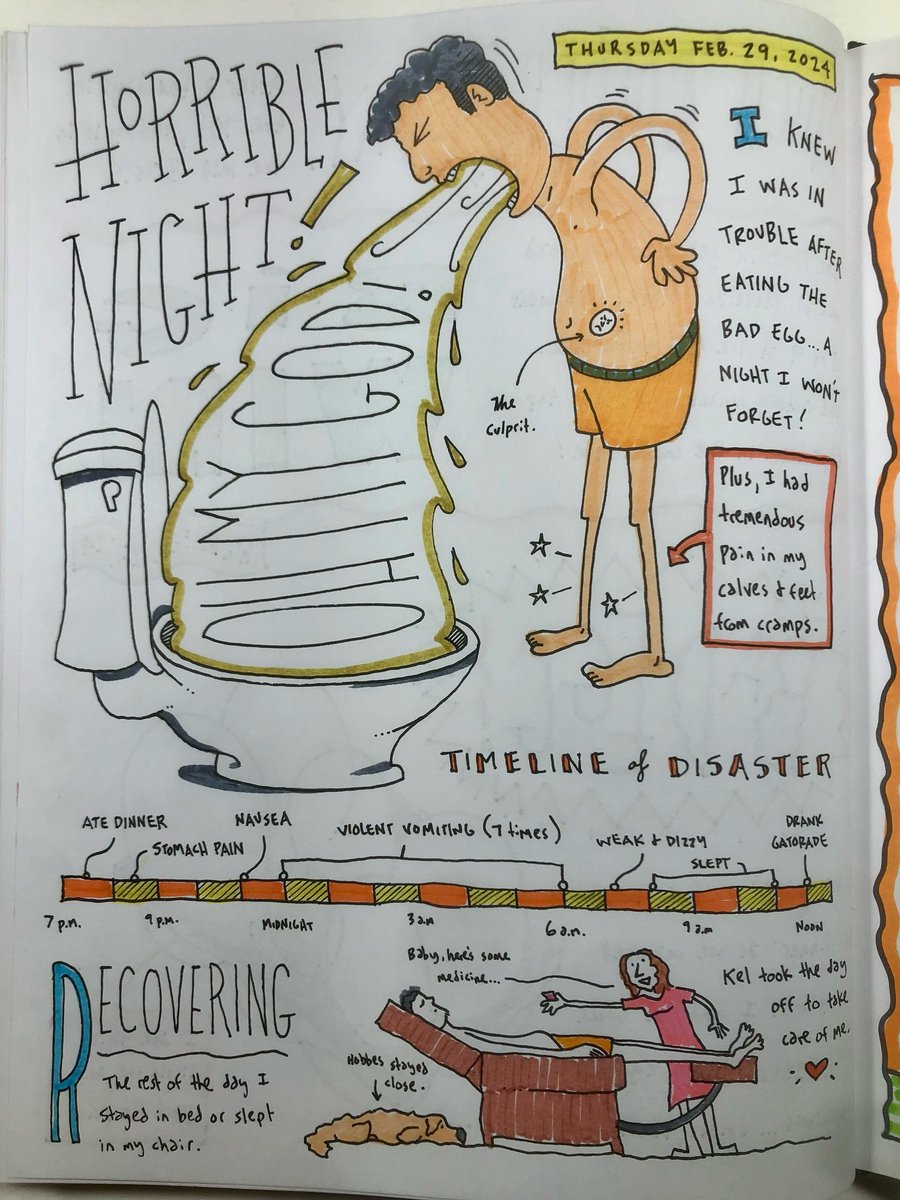 HORRIBLE
NIGHT!
THURSDAY FEB. 29, 2024
I KNEW
I WAS IN
TROUBLE AFTER
EATING THE
BAD EGG... A
NIGHT I WON'T
FORGET!
The
culprit.
Plus, I had
tremendous
pain in my
calves & feet
from cramps.
TIMELINE of DISASTER
ATE DINNER
STOMACH PAIN
NAUSEA
VIOLENT VOMITING (7 times)
WEAK & DIZZY
SLEPT
DRANK
GATORADE
7 p.m.
9 p.m.
MIDNIGHT
3 a.m
6 a.m.
9 a.m
NOON
RECOVERING
The rest of the day I
stayed in bed or slept
in my chair.
Hobbes stayed
close.
Baby, here's some
medicine...
Kel took the day
off to take
care of me.